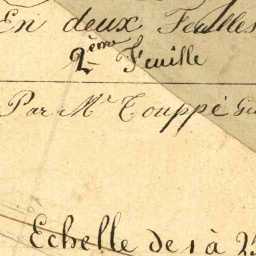 En deux Feuilles
2ème Feuille
Par Mr. Touppé
Echelle de 1 à 25